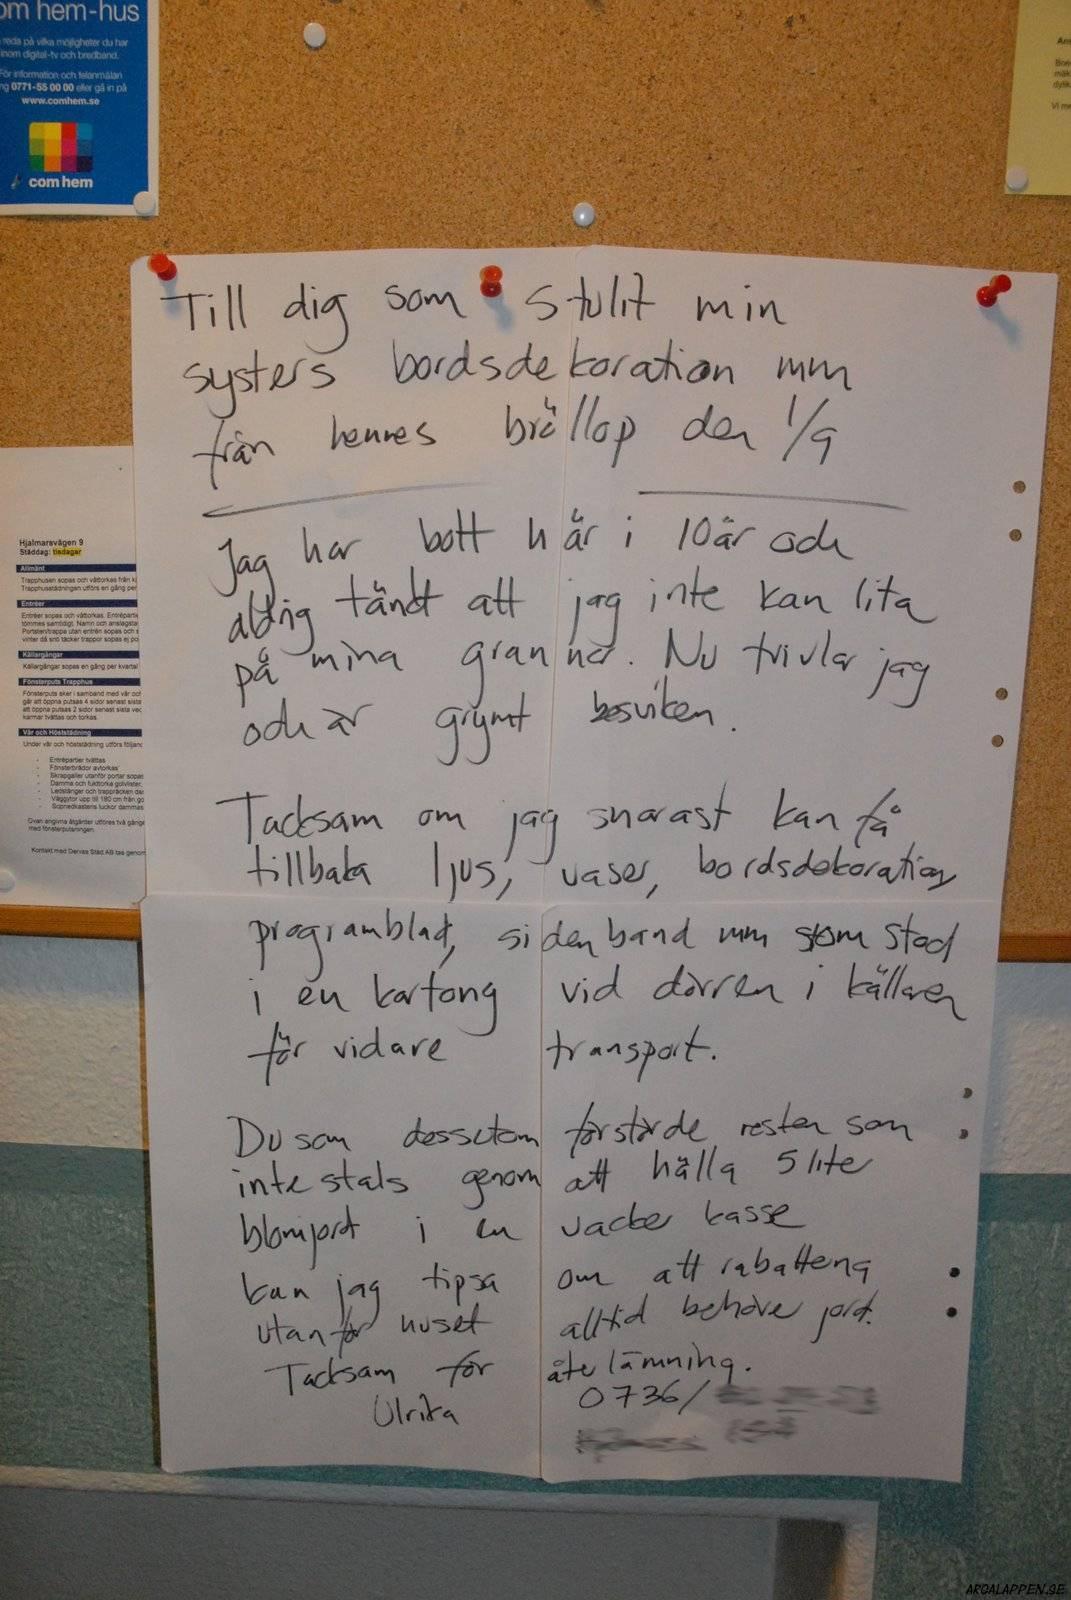 om hem-hus
reda på vilka möjligheter du har
inom digital-tv och bredband.
För information och felanmälan
ng 0771-55 00 00 eller gå in på
www.comhem.se
com hem
Till dig som stulit min
systers bordsdekoration mm
från hennes bröllop den 1/9
Jag har bott här i 10 år och
aldrig tänkt att jag inte kan lita
på mina grannar. Nu tvivlar jag
och är grymt besviken.
Tacksam om jag snarast kan få
tillbaka ljus, vaser, bordsdekoration,
programblad, sidenband mm som stod
i en kartong vid dörren i källaren
för vidare transport.
Du som dessutom förstörde resten som
inte stals genom att hälla 5 liter
blomjord i en vacker kasse
kan jag tipsa om att rabatterna
utanför huset alltid behöver jord.
Tacksam för återlämning.
Ulrika 0736/
Hjalmarsvägen 9
Städdag: tisdagar
Allmänt
Trapphusen sopas och våttorkas från
Trapphusstädningen utförs en gång per
Entréer
Entréer sopas och våttorkas.
tömmes samtidigt. Namn och
Portsten/trappa utan entrén sopas och
vinter då snö täcker trappor sopas ej
Källargångar
Källargångar sopas en gång per kvartal
Fönsterputs Trapphus
Fönsterputs sker i samband med vår och
går att öppna putsas 4 sidor senast sista
att öppna putsas 2 sidor senast sista
karmar tvättas och torkas.
Vår och Höststädning
Under vår och höststädning utförs
- Entrépartier tvättas
- Fönsterbrädor avtorkas
- Skrapgaller utanför portar sopas
- Damma och fukttorka golvlister,
- Ledstänger och trappräcken
- Väggytor upp till 180 cm från
- Sopnedkastens luckor dammas
Ovan angivna åtgärder utföres två
med fönsterputsningen.
Kontakt med Dervas Städ AB tas genom
ARGALAPPEN.SE